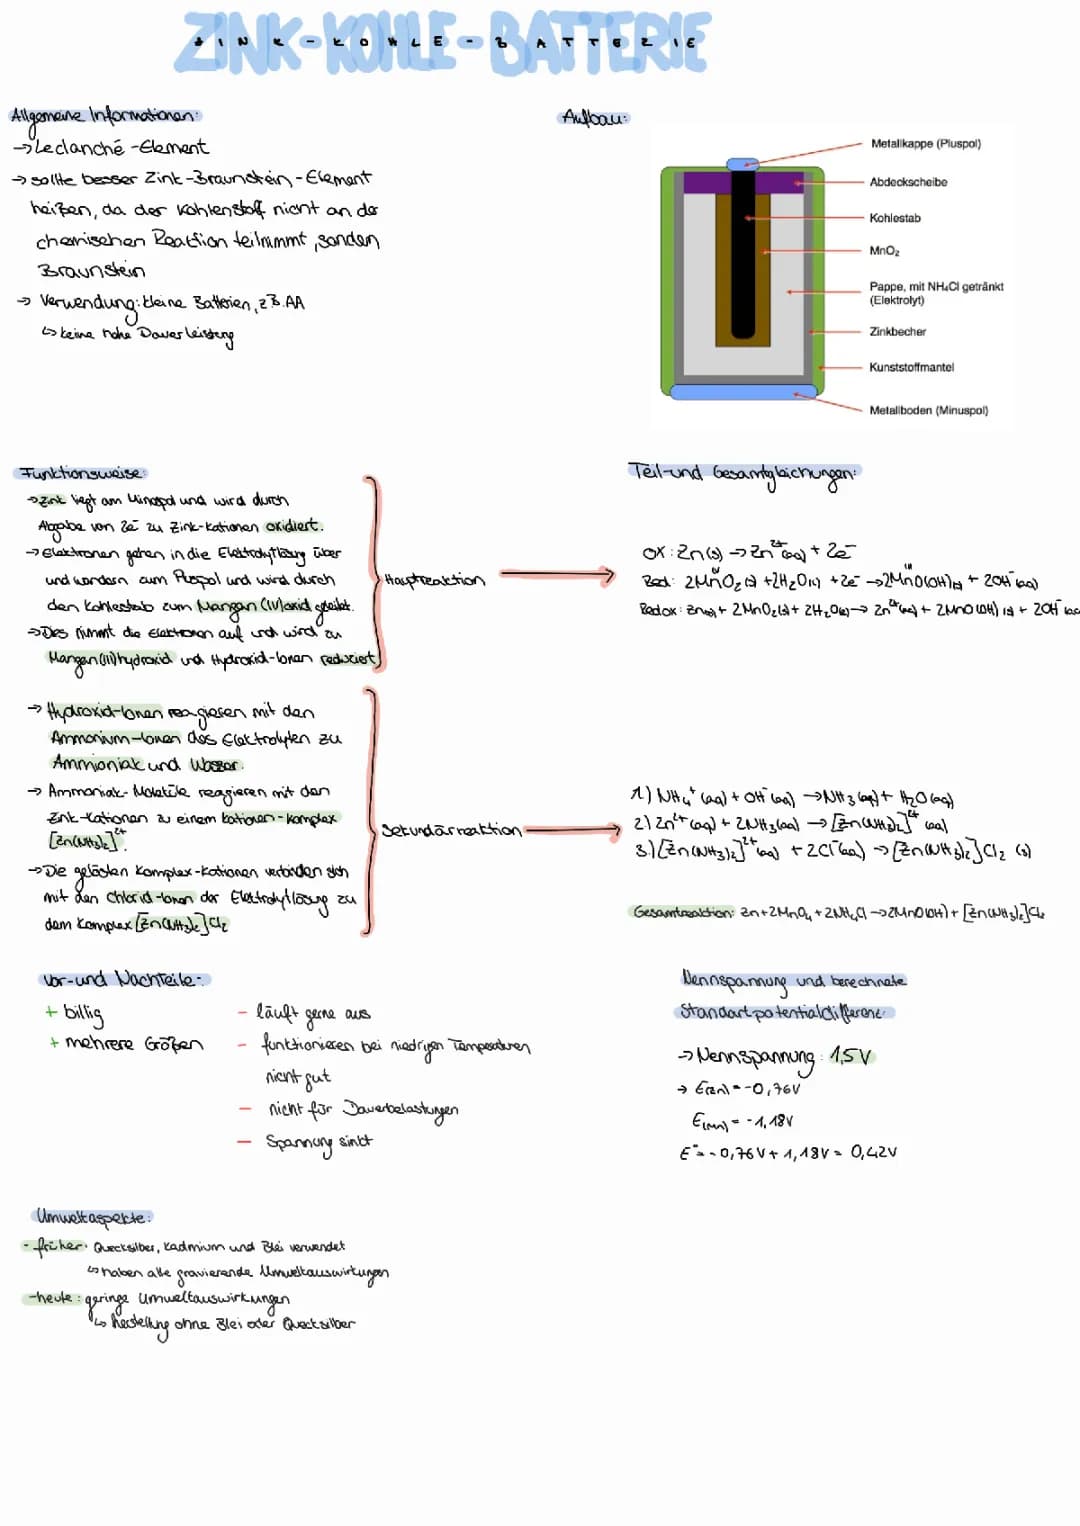 ZINK-KOHLE-BATTERIE
ZINK-KOHLE-BATTERIE
Allgemeine Informationen:
→ Leclanché-Element
→ sollte besser Zink-Braunstein-Element
heißen, da der Kohlenstoff nicht an der
chemischen Reaktion teilnimmt, sondern
Braunstein
→ Verwendung: kleine Batterien, z.B. AA
↳ keine hohe Dauerleistung
Aufbau:
Metallkappe (Pluspol)
Abdeckscheibe
Kohlestab
MnO₂
Pappe, mit NH₄Cl getränkt
(Elektrolyt)
Zinkbecher
Kunststoffmantel
Metallboden (Minuspol)
Funktionsweise:
→ Zink liegt am Minuspol und wird durch
Abgabe von 2e⁻ zu Zink-Kationen oxidiert.
→ Elektronen gehen in die Elektrolytlösung über
und wandern zum Pluspol und wird durch
den Kohlestab zum Mangan(IV)oxid geleitet.
→ Dies nimmt die Elektronen auf und wird zu
Mangan(III)hydroxid und Hydroxid-Ionen reduziert
Hauptreaktion
Teil-und Gesamtgleichungen:
Ox: Zn(s) → Zn²⁺(aq) + 2e⁻
IV III
Red: 2MnO₂(s) + 2H₂O(l) + 2e⁻ → 2MnO(OH)(s) + 2OH⁻(aq)
Redox: Zn(s) + 2MnO₂(s) + 2H₂O(l) → Zn²⁺(aq) + 2MnO(OH)(s) + 2OH⁻(aq
→ Hydroxid-Ionen reagieren mit den
Ammonium-Ionen des Elektrolyten zu
Ammoniak und Wasser.
→ Ammoniak-Moleküle reagieren mit den
Zink-Kationen zu einem Kationen-Komplex
[Zn(NH₃)₂]²⁺.
→ Die gelösten Komplex-Kationen verbinden sich
mit den Chlorid-Ionen der Elektrolytlösung zu
dem Komplex [Zn(NH₃)₂]Cl₂
Sekundärreaktion
1.) NH₄⁺(aq) + OH⁻(aq) → NH₃(aq) + H₂O(aq)
2.) Zn²⁺(aq) + 2NH₃(aq) → [Zn(NH₃)₂]²⁺(aq)
3.) [Zn(NH₃)₂]²⁺(aq) + 2Cl⁻(aq) → [Zn(NH₃)₂]Cl₂ (s)
Gesamtreaktion: Zn + 2MnO₄ + 2NH₄Cl → 2MnO(OH) + [Zn(NH₃)₂]Cl₂
Vor-und Nachteile:
+ billig
+ mehrere Größen
- läuft gerne aus
- funktionieren bei niedrigen Temperaturen
nicht gut
- nicht für Dauerbelastungen
- Spannung sinkt
Nennspannung und berechnete
Standartpotentialdifferenz:
→ Nennspannung: 1,5V
→ E(Zn) = -0,76V
E(Mn) = -1,18V
E° = -0,76V + 1,18V = 0,42V
Umweltaspekte:
- früher: Quecksilber, Kadmium und Blei verwendet
↳ haben alle gravierende Umweltauswirkungen
- heute: geringe Umweltauswirkungen
↳ herstellung ohne Blei oder Quecksilber